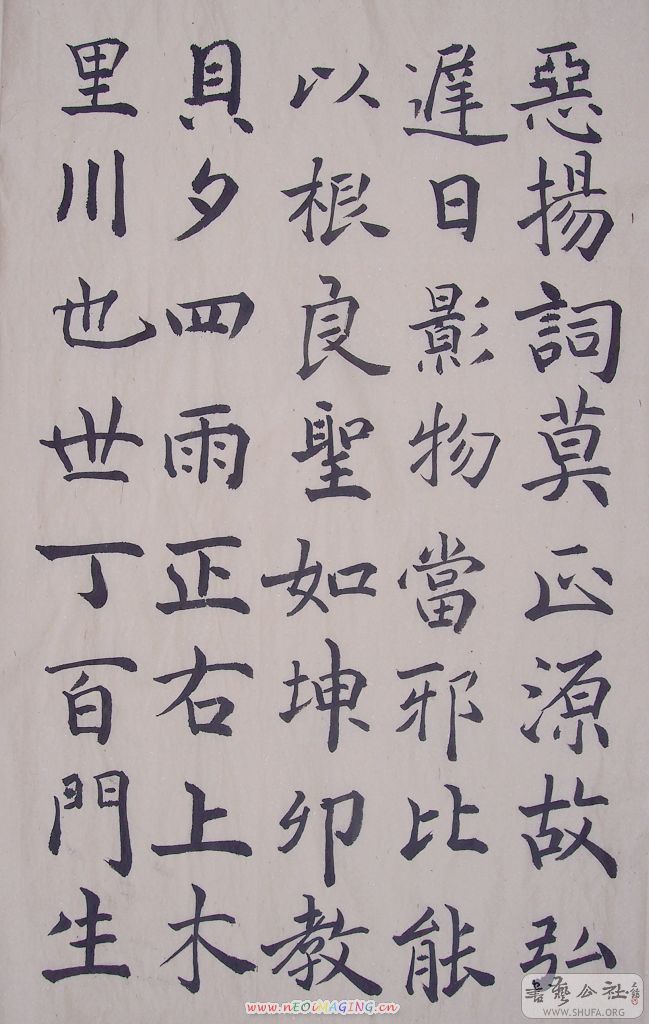 惡揚詞莫正源故弘
遲日影物當邪比能
以根良聖如坤卯教
貝夕四雨正右上木
里川也世丁百門生
書藝公社
WWW.SHUFA.ORG
www.nEOiMAGING.cn